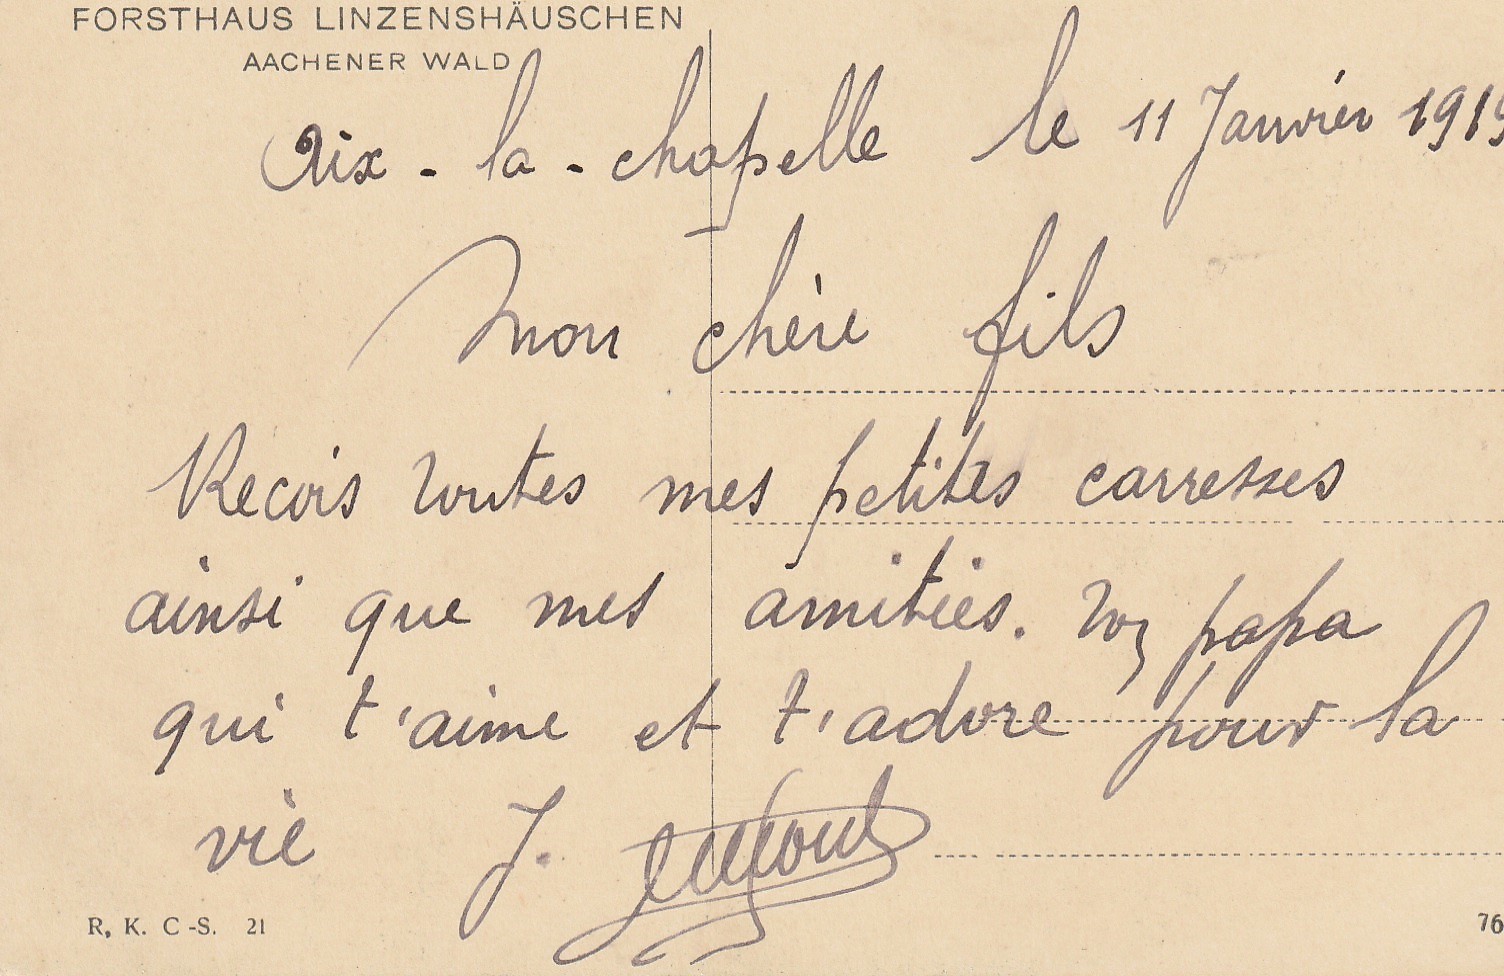 FORSTHAUS LINZENSHÄUSCHEN
AACHENER WALD
Aix - la - chapelle le 11 Janvier 1919
Mon chère fils
Recois toutes mes petites carresses
ainsi que mes amitiés. Ton papa
qui t'aime et t'adore pour la
vie J.
R. K. C-S. 21
76